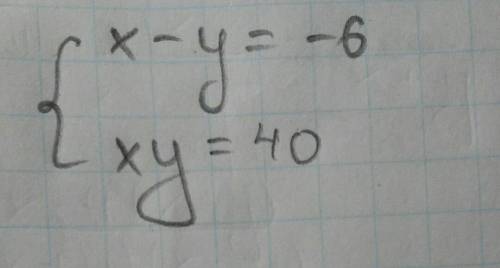 x - y = -6
xy = 40